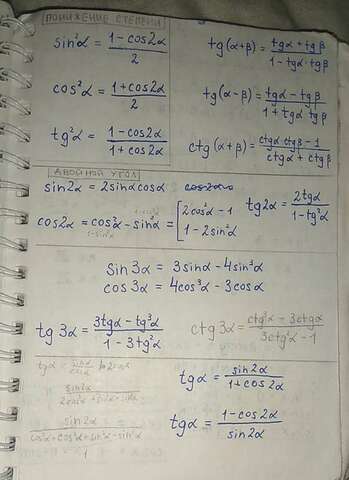 ПОНИЖЕНИЕ СТЕПЕНИ
sin²α = (1 - cos2α)/2
tg(α+β) = (tgα + tgβ)/(1 - tgα·tgβ)
cos²α = (1 + cos2α)/2
tg(α-β) = (tgα - tgβ)/(1 + tgα tgβ)
tg²α = (1 - cos2α)/(1 + cos2α)
ctg(α+β) = (ctgα ctgβ - 1)/(ctgα + ctgβ)
ДВОЙНОЙ УГОЛ
sin2α = 2sinαcosα
cos2α = cos²α - sin²α = [2cos²α - 1
1 - 2sin²α
tg2α = 2tgα/(1 - tg²α)
sin3α = 3sinα - 4sin³α
cos3α = 4cos³α - 3cosα
tg3α = (3tgα - tg³α)/(1 - 3tg²α)
ctg3α = (ctg³α - 3ctgα)/(3ctg²α - 1)
tgα = sinα/cosα
tgα = sin2α/(1 + cos2α)
sin2α
sin2α/(cos²α + cos²α + sin²α - sin²α)
tgα = (1 - cos2α)/sin2α